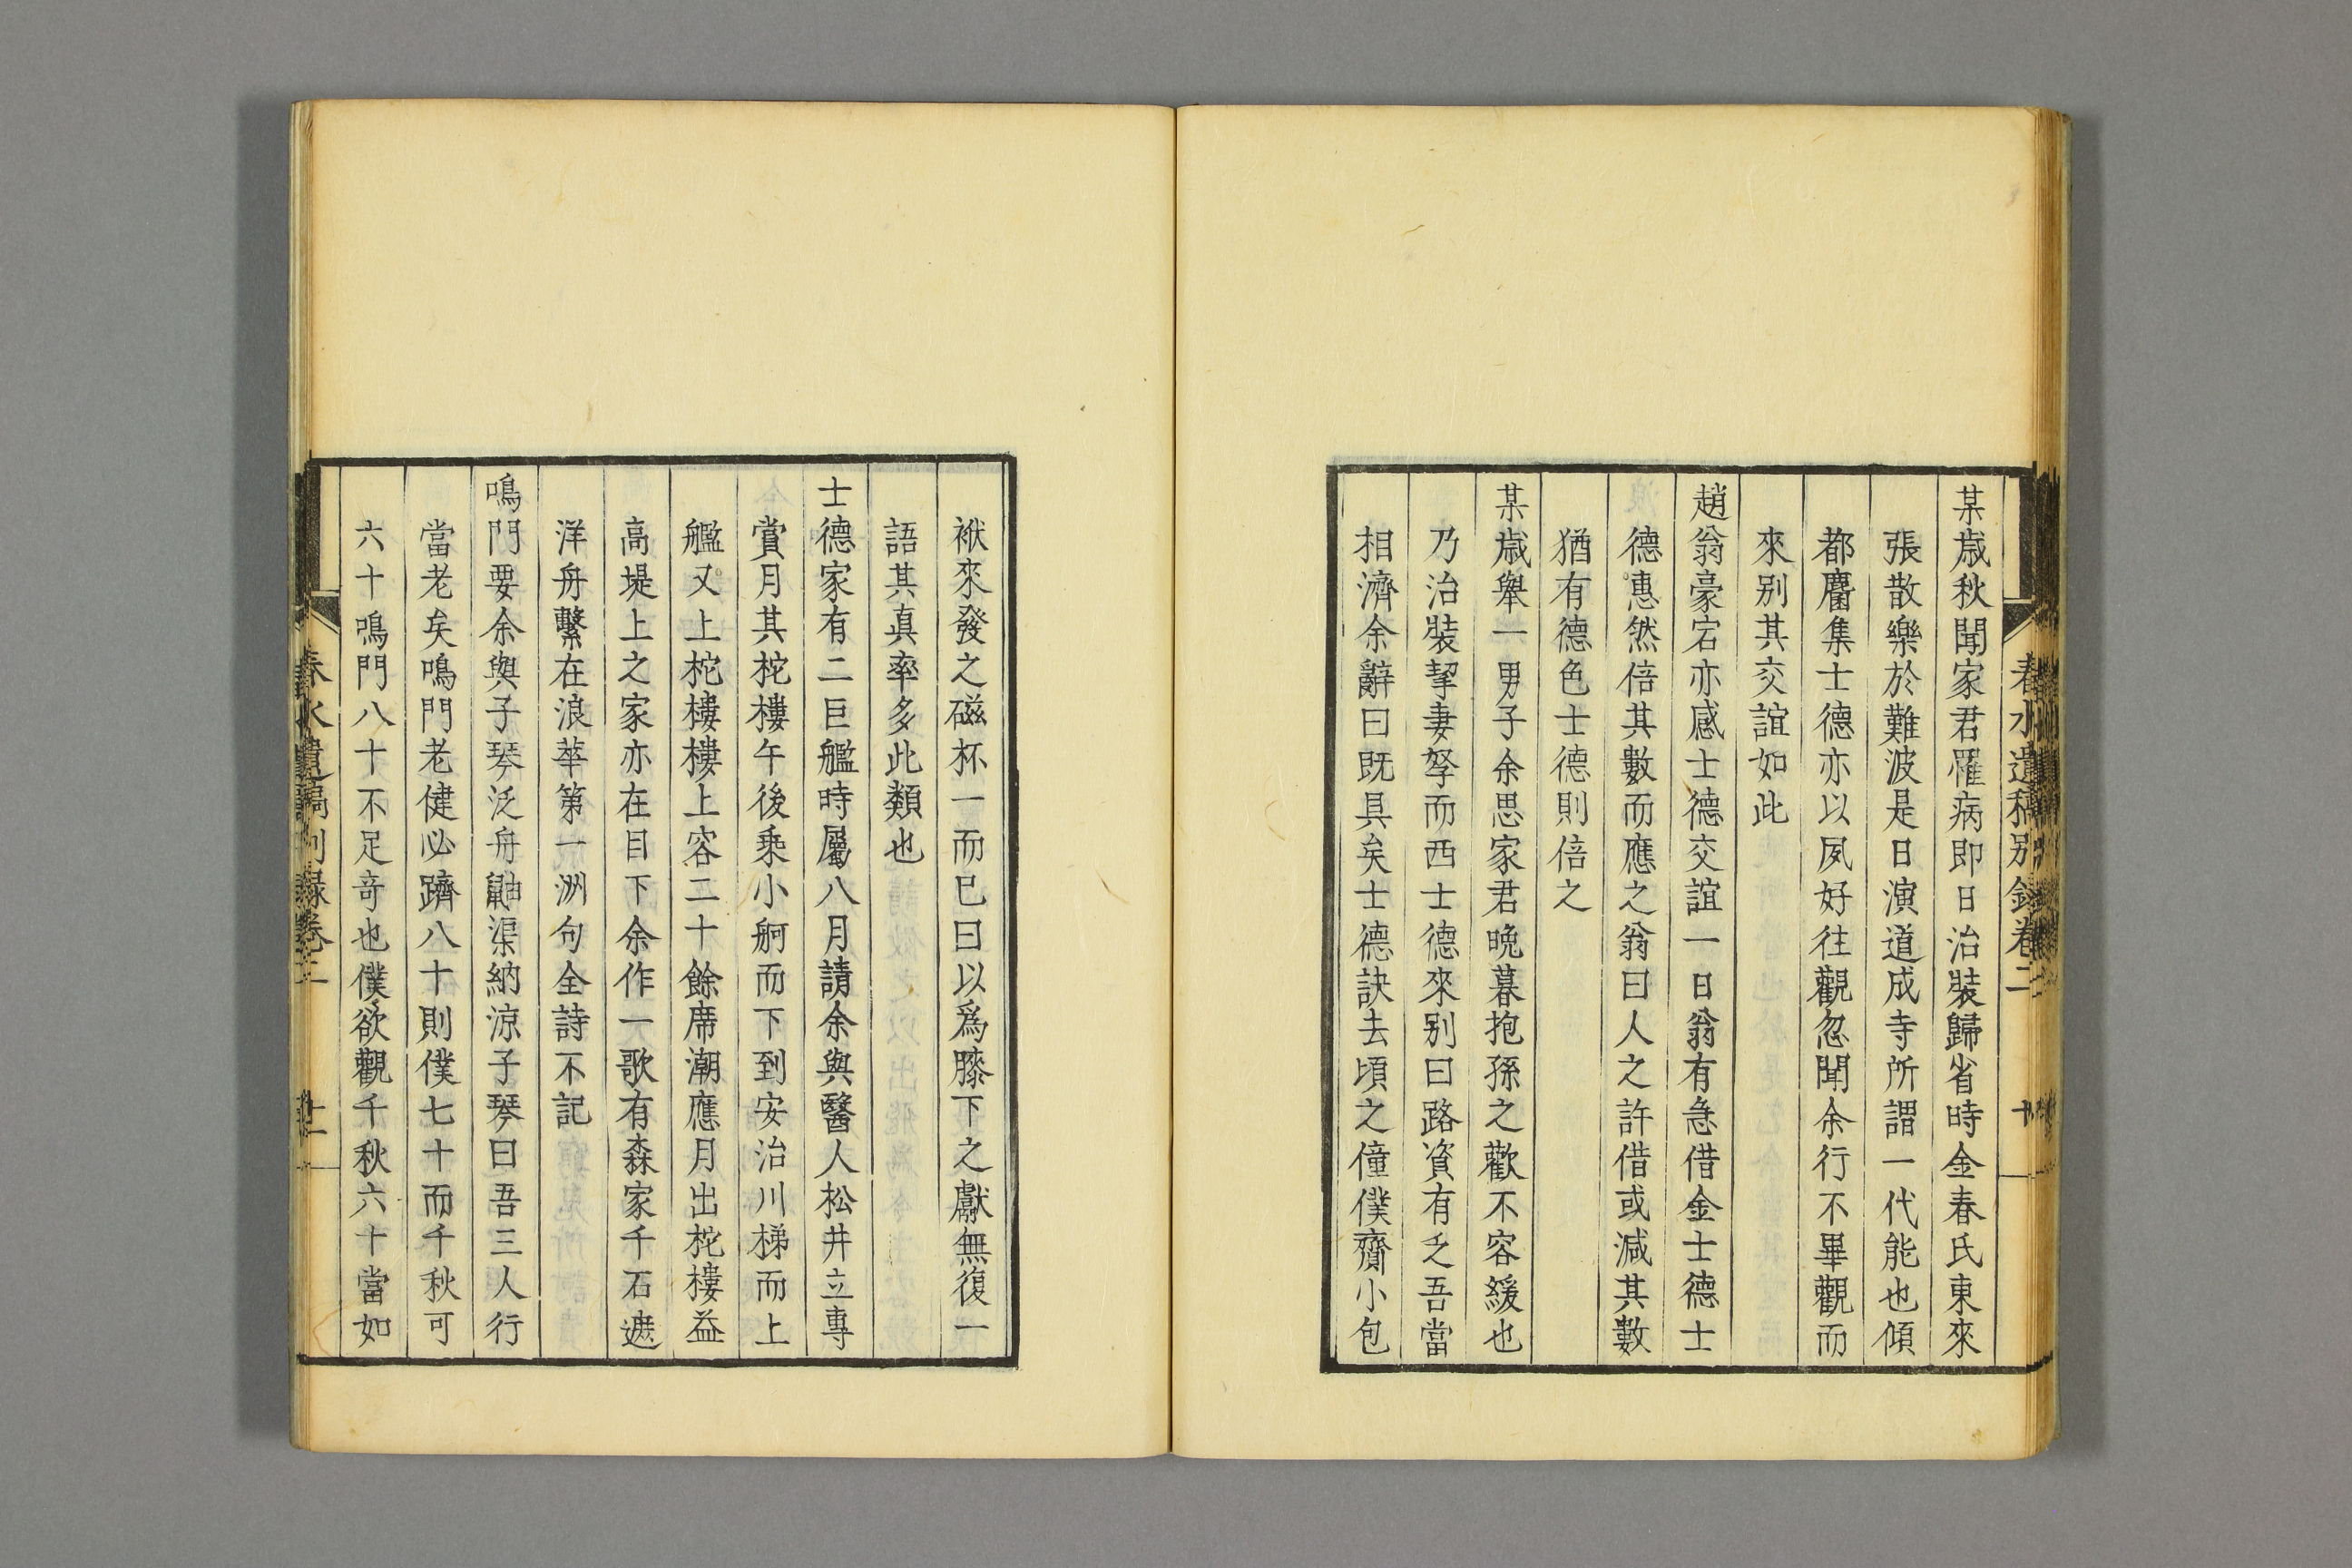 春水遺稿別錄卷二
十
某歳秋聞家君罹病即日治裝歸省時金春氏東來
張散樂於難波是日演道成寺所謂一代能也傾
都麕集士德亦以夙好往觀忽聞余行不畢觀而
來別其交誼如此
趙翁豪宕亦感士德交誼一日翁有急借金士德士
德惠然倍其數而應之翁曰人之許借或減其數
猶有德色士德則倍之
某歳舉一男子余思家君晩暮抱孫之歡不容緩也
乃治裝挈妻孥而西士德來別曰路資有乏吾當
相濟余辭曰既具矣士德訣去頃之僮僕齎小包
袱來發之磁杯一而已曰以爲膝下之獻無復一
語其真率多此類也
士德家有二巨艦時屬八月請余與醫人松井立專
賞月其柁樓午後乘小舸而下到安治川梯而上
艦又上柁樓樓上容二十餘席潮應月出柁樓益
高堤上之家亦在目下余作一歌有森家千石遮
洋舟繫在浪華第一洲句全詩不記
鳴門要余與子琴泛舟鼬渠納涼子琴曰吾三人行
當老矣鳴門老健必躋八十則僕七十而千秋可
六十鳴門八十不足奇也僕欲觀千秋六十當如
春水遺稿別錄卷二
十一